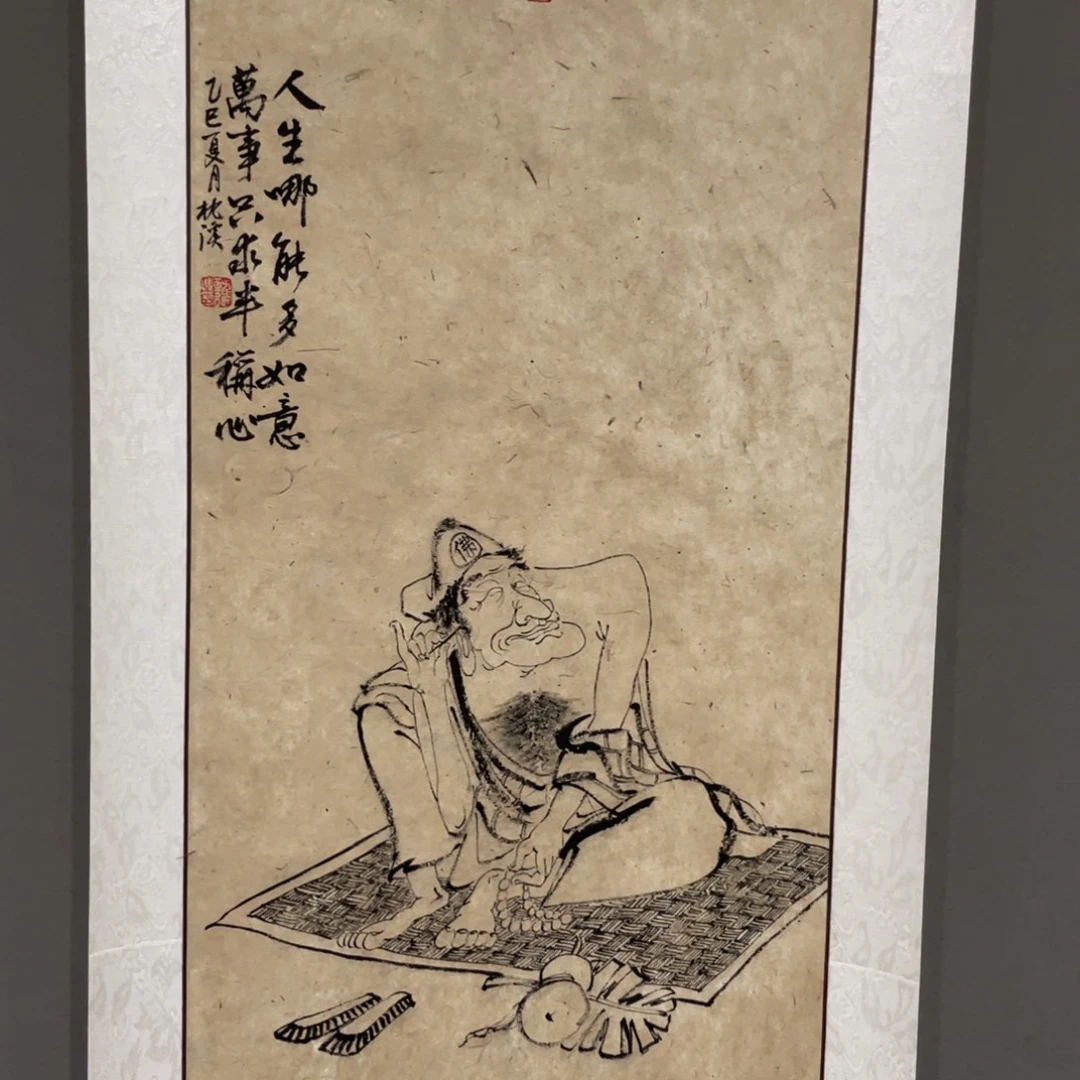 人生哪能多如意
萬事只求半稱心
乙巳夏月枕溪
佛